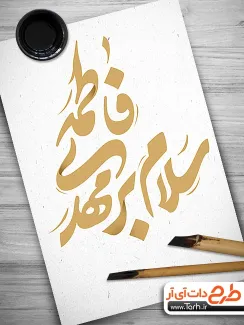 سلام بر مهدی
فاطمه
طرح دات آی آر
www.Tarh.ir